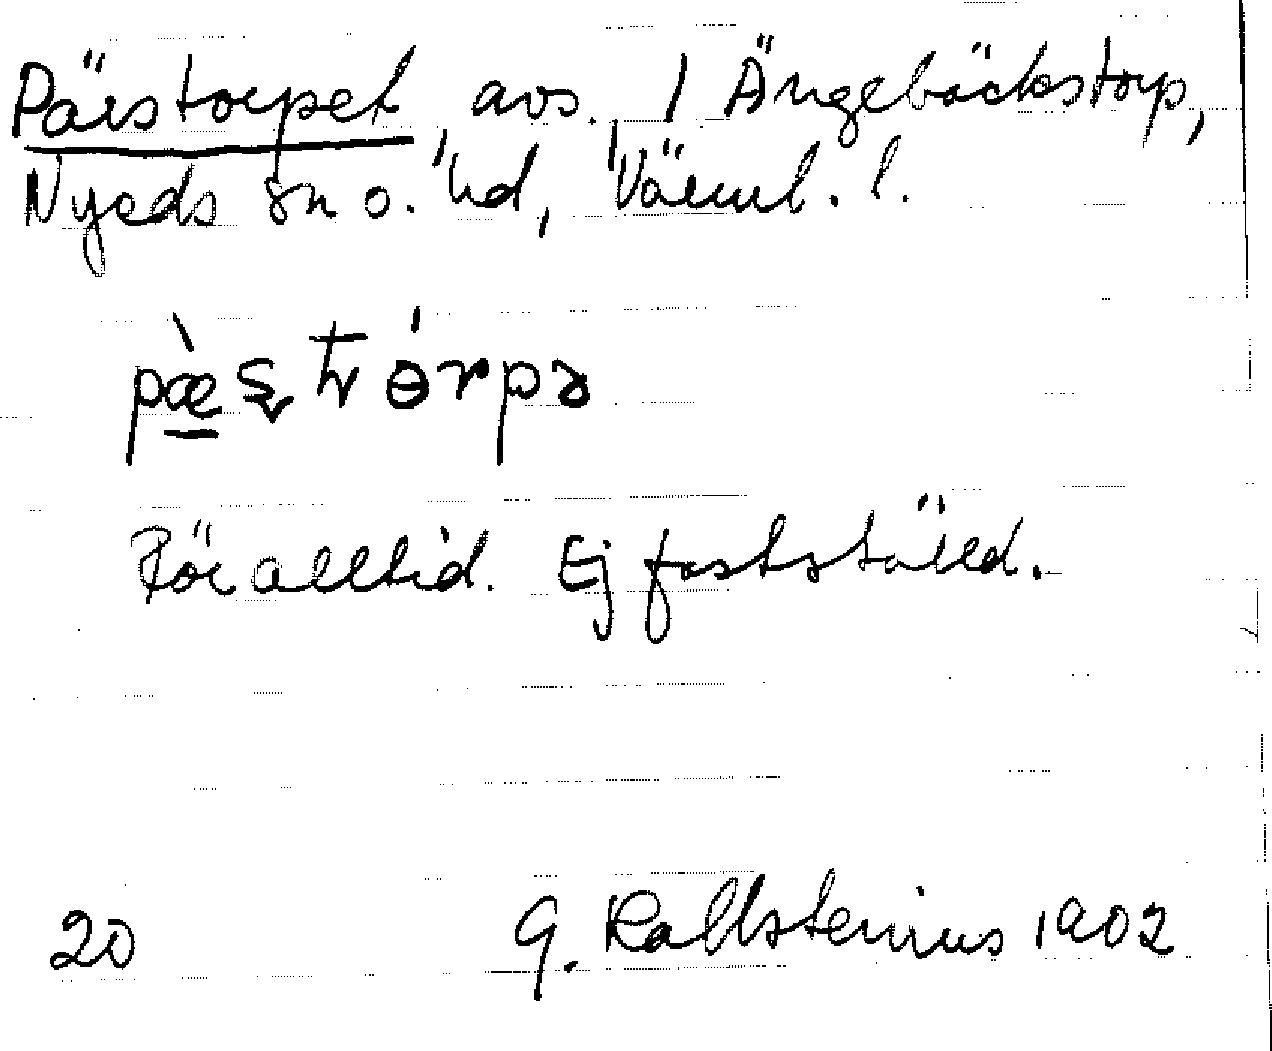 Pärstorpet, avs. / Ängebäckstorp,
Nyeds sn o. hd, Värml. l.
pæ̀ʂʈɵ́rpə
För alltid. Ej fastställd.
20 G. Kallstenius 1902